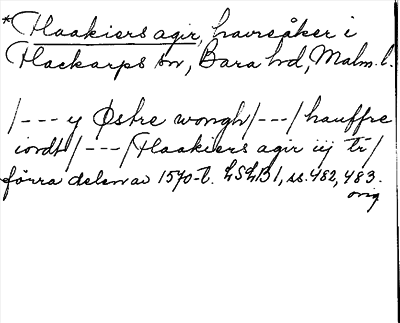 *Haakiers agir, havreåker i
Hackarps sn, Bara hd, Malm. l.
/--- y Østre wongh/---/hauffre
iordt/---/Haakiers agir iij tr/
förra delen av 1570-t. LSLB 1, ss. 482, 483.
orig